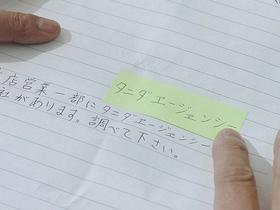 タニダエージェンシー
店営業一部にタニダエージェンシー
社があります。調べて下さい。